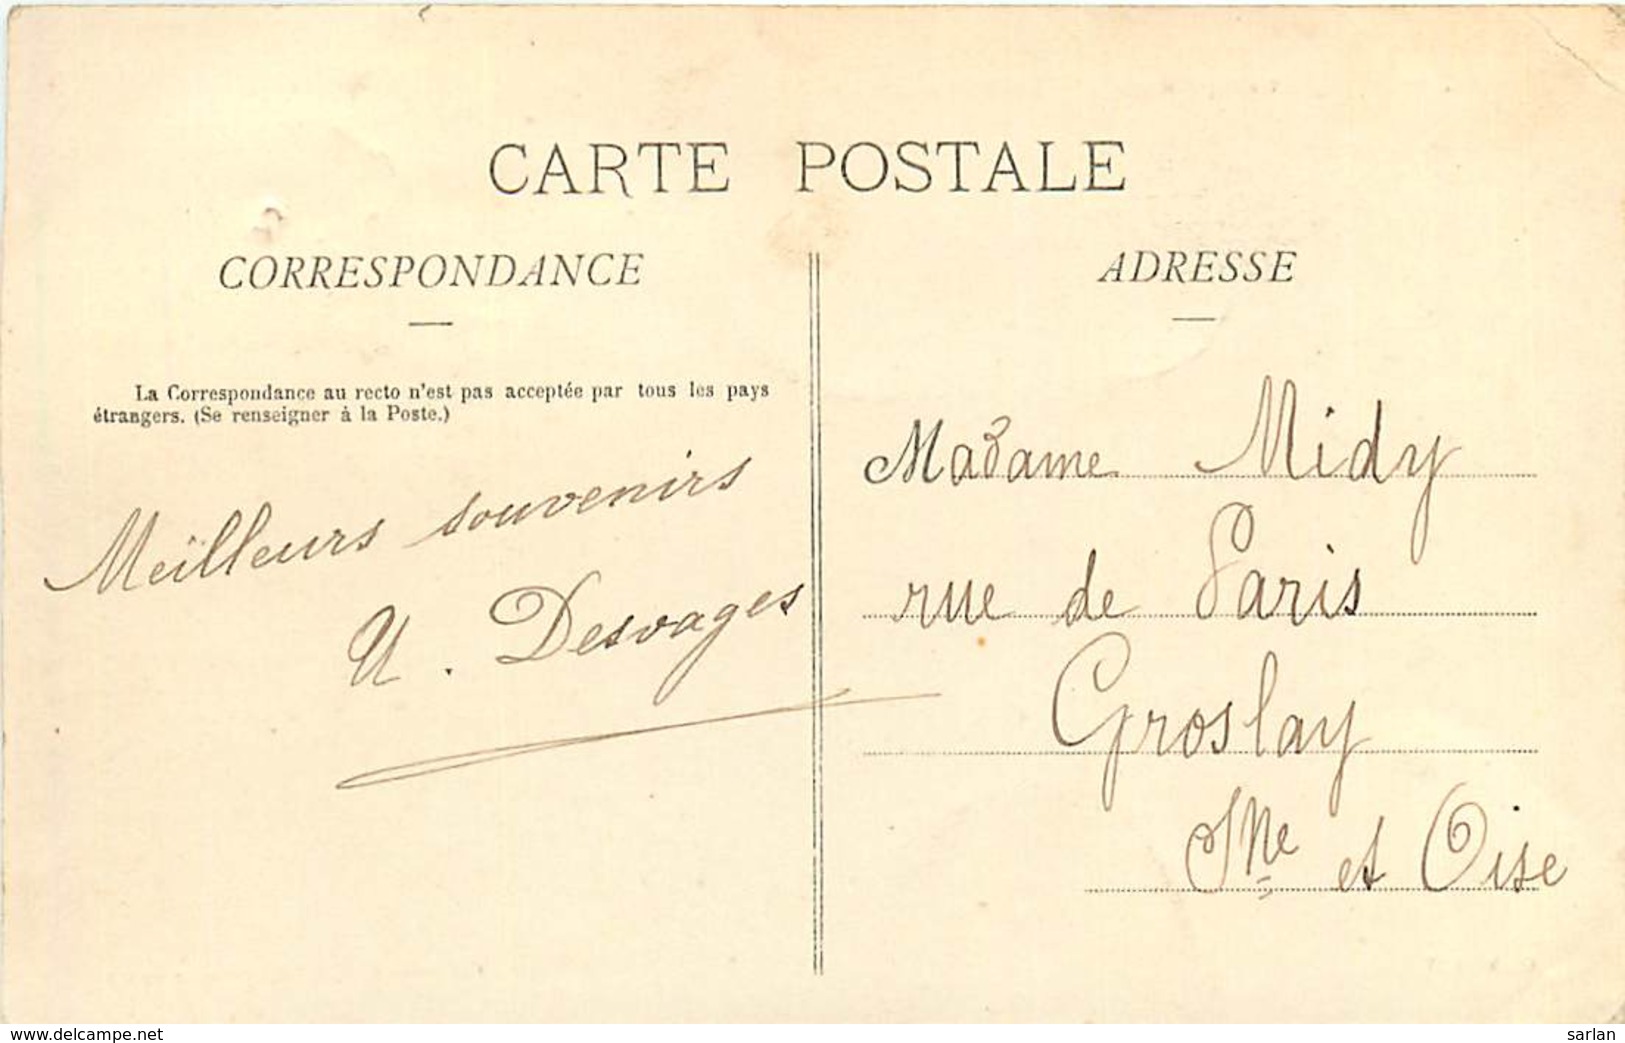 CARTE POSTALE
CORRESPONDANCE
La Correspondance au recto n'est pas acceptée par tous les pays
étrangers. (Se renseigner à la Poste.)
Meilleurs souvenirs
U. Desvages
ADRESSE
Madame Midy
rue de Paris
Groslay
Sne et Oise
www.delcampe.net
sarlan